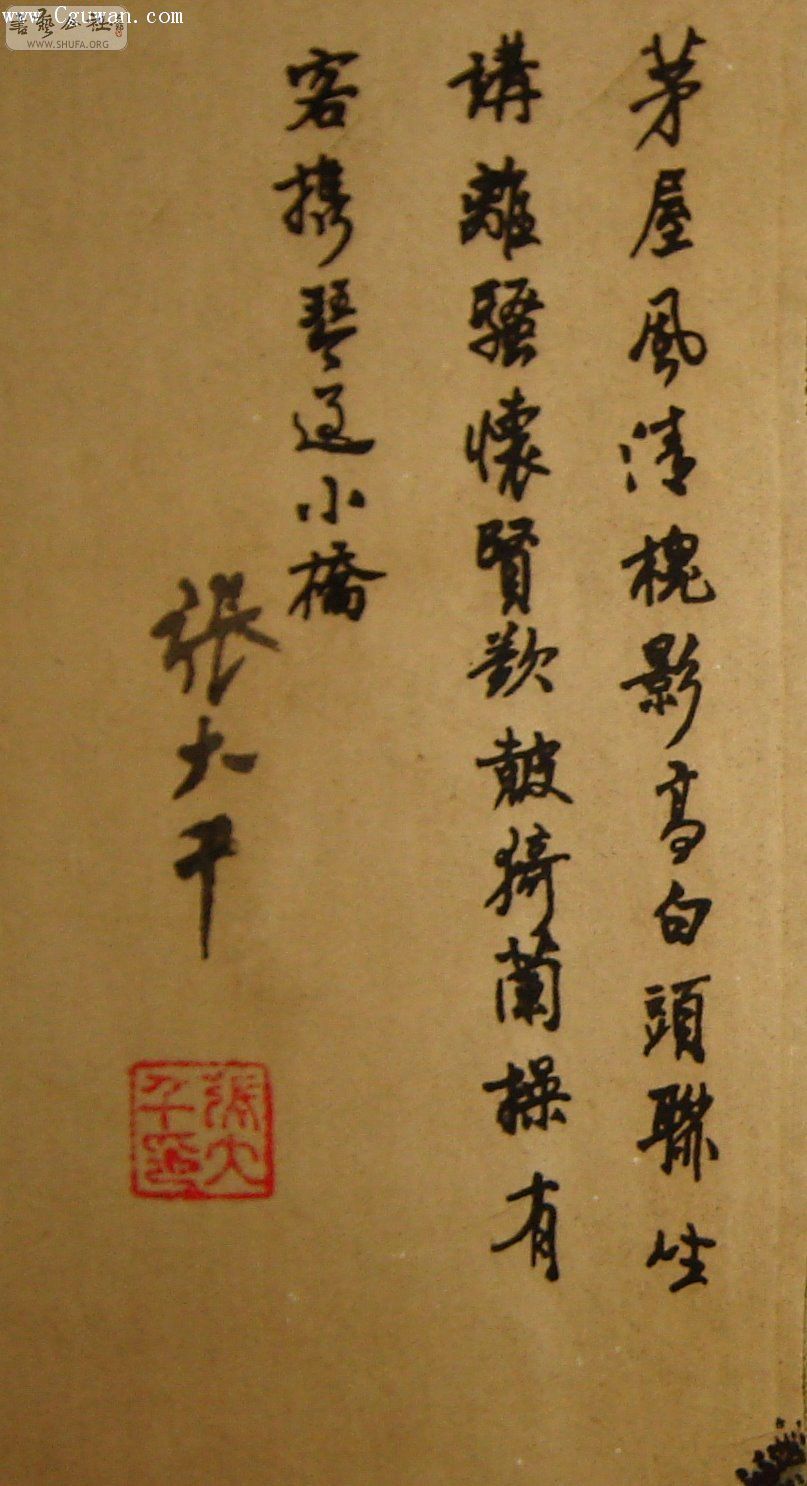 www.Cguwan.com
書藝公社
WWW.SHUFA.ORG
茅屋風清槐影高白頭聯坐
講離騷懷賢欵鼓猗蘭操有
客攜琴過小橋
張大千
張大
千